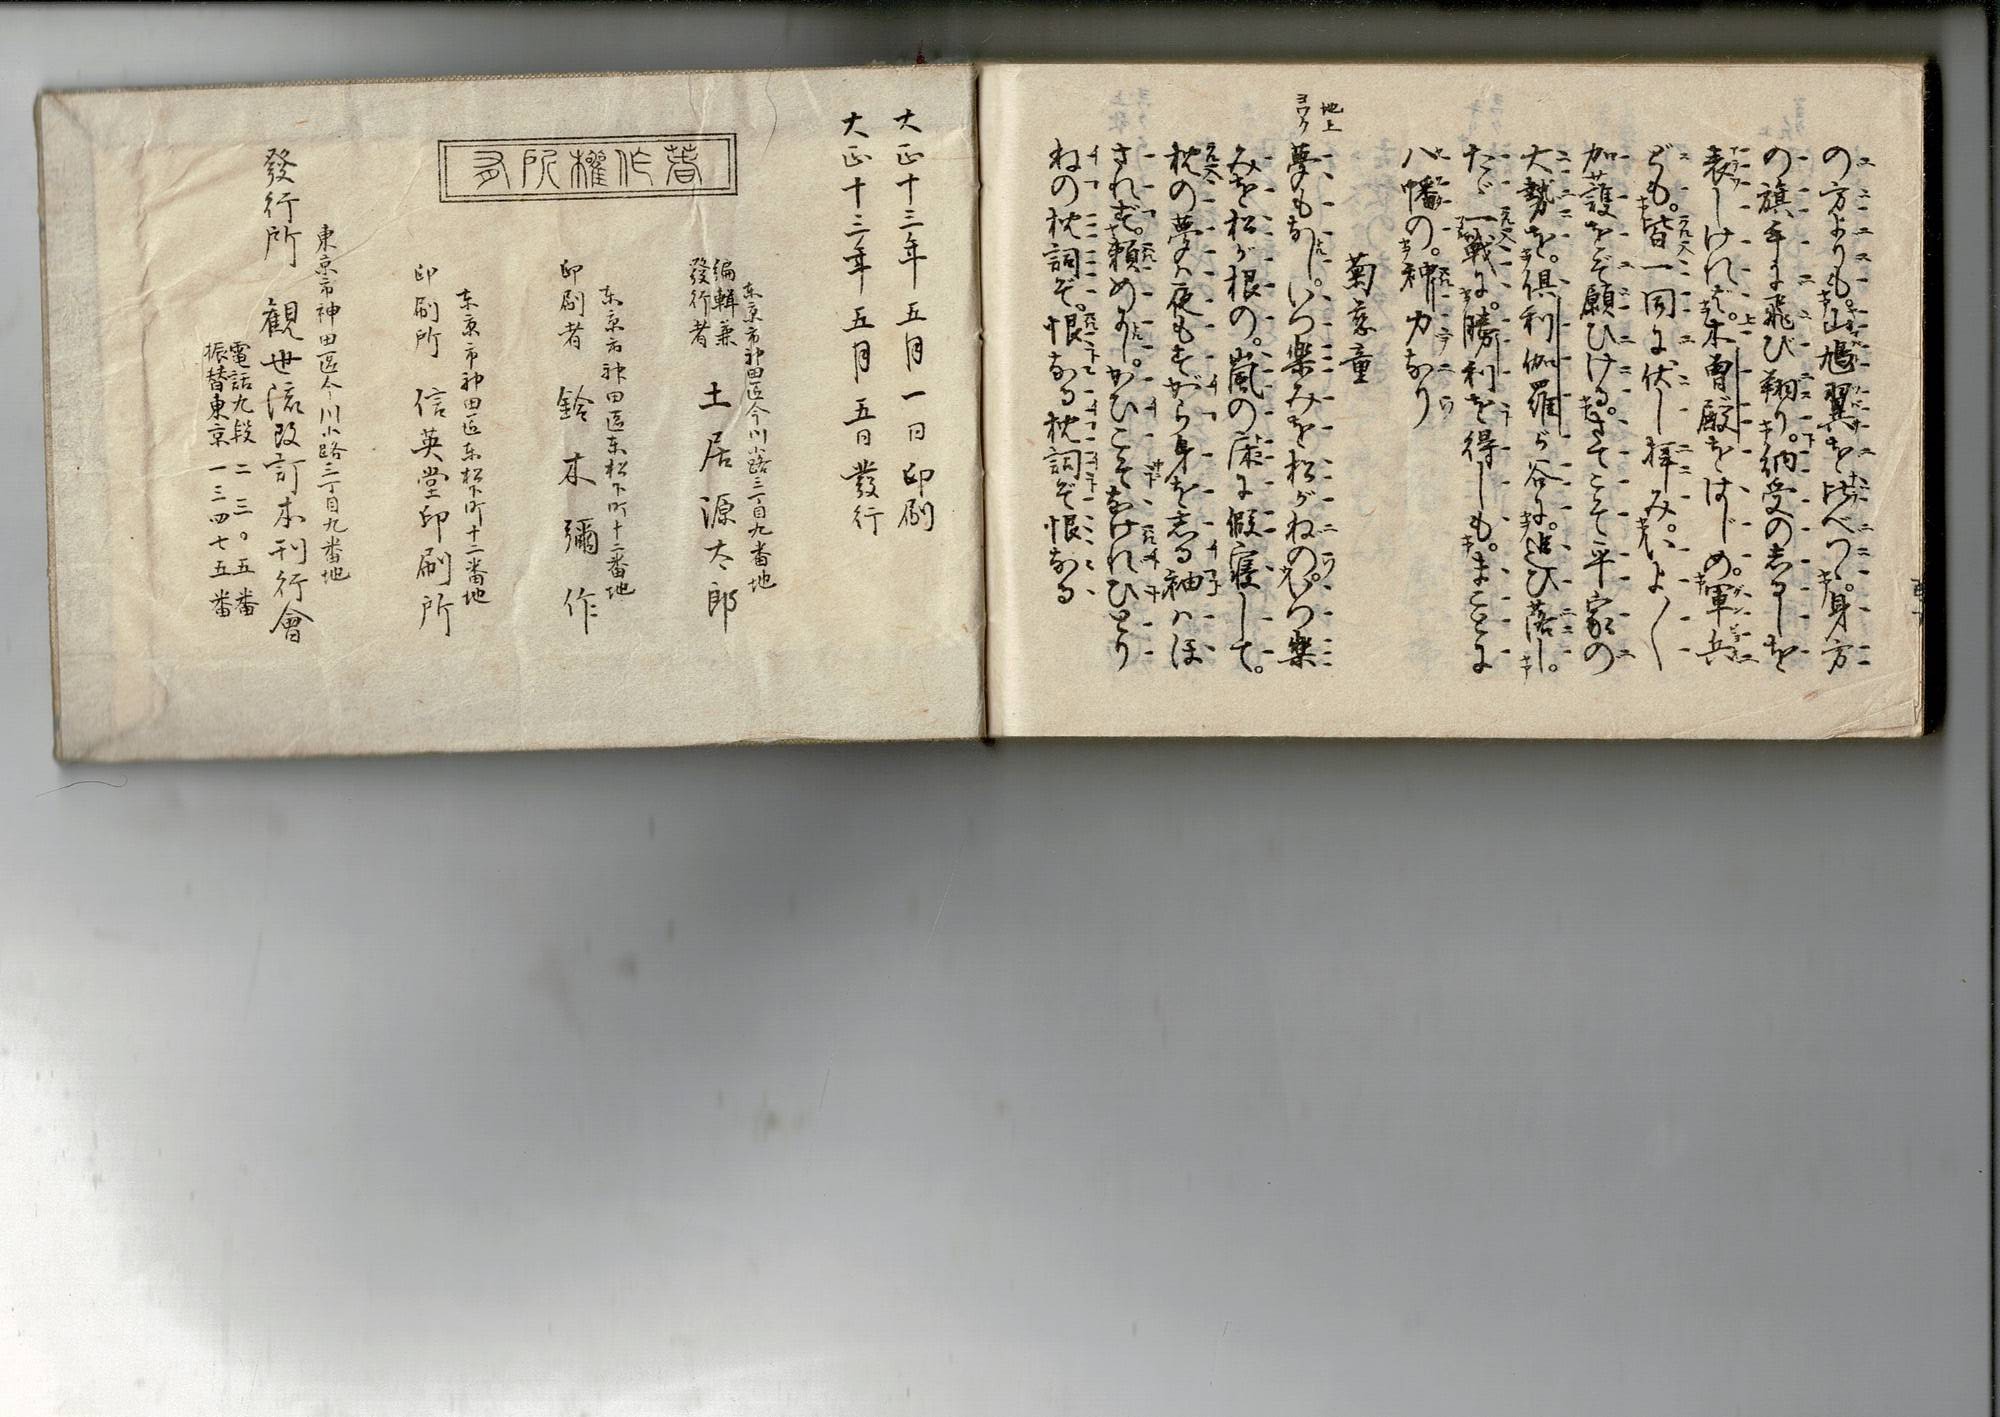 の方よりも。山鳩翼を比べつゝ。身方
の旗手に飛び翔り。納受のしるしを
表しければ。木曽殿をはじめ。軍兵
ども。皆一同に伏し拝み。いよ〱
加護をぞ願ひける。さてこそ平家の
大勢を。倶利伽羅が谷に。追ひ落し。
たゞ一戦に。勝利を得しも。まことに
八幡の。神力なり
菊慈童
地上
ヨワク
夢もなし。いつ楽みを松がねの。いつ楽
みを松が根の。嵐の床に假寝して。
枕の夢は夜もすがら身を知る袖はほ
されず。頼めにし。かひこそなけれひとり
ねの枕詞ぞ。恨なる枕詞ぞ恨なる
大正十三年五月一日印刷
大正十三年五月五日發行
著作權所有
東京市神田區今川小路三丁目九番地
編輯兼
發行者 土居源太郎
東京市神田區东松下町十二番地
印刷者 鈴木彌作
东京市神田區东松下町十二番地
印刷所 信英堂印刷所
東京市神田區今川小路三丁目九番地
發行所 観世流改訂本刊行會
電話九段二三〇五番
振替東京一三四七五番